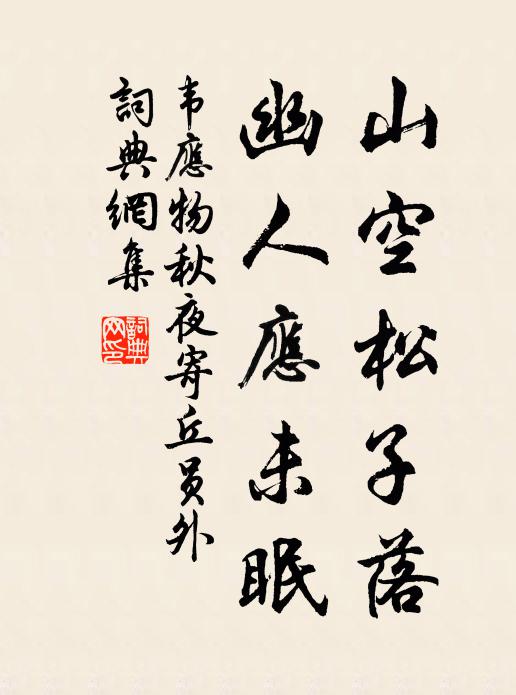 山空松子落
幽人應未眠
韦應物秋夜寄丘員外
詞典網集
詞典
网印